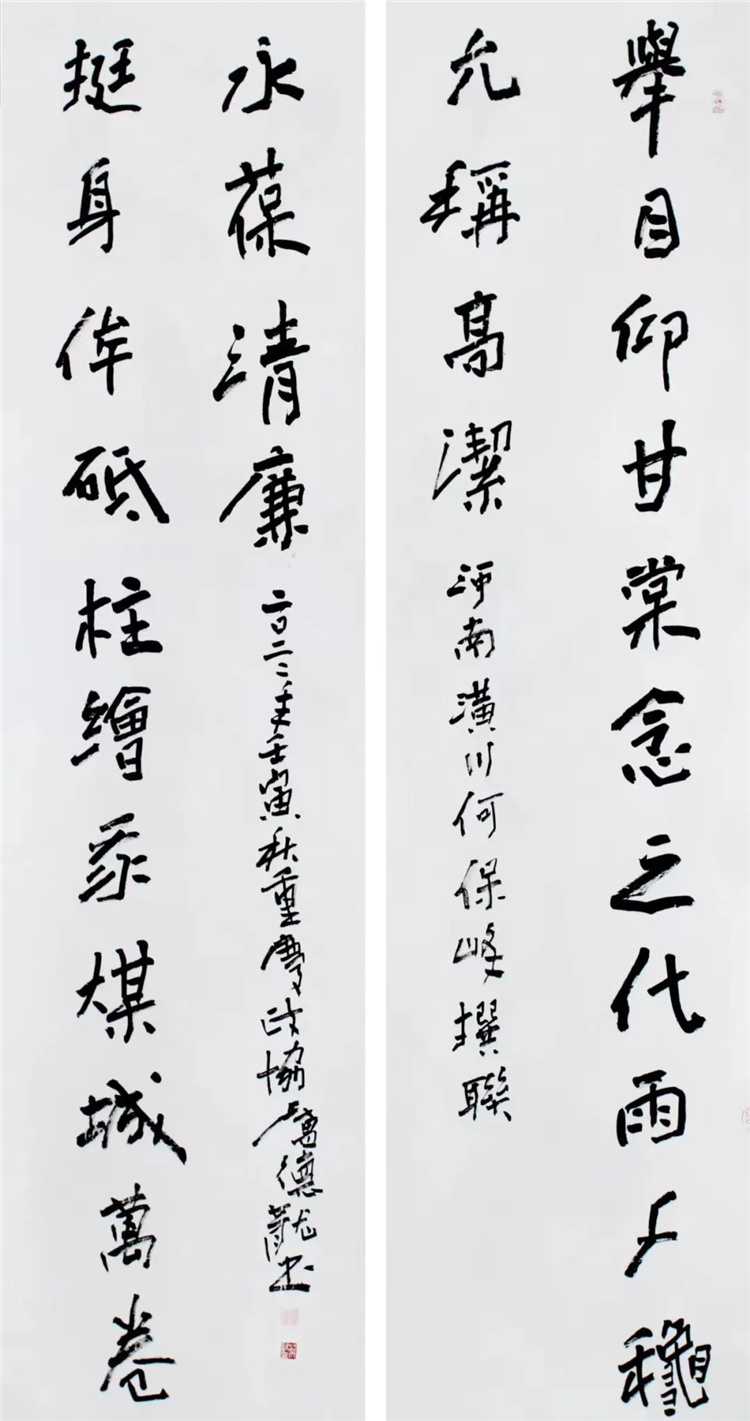 舉目仰甘棠念之代雨千穐
允稱高潔
河南潢川何保峰撰聯
挺身侔砥柱繪煤城萬卷
永葆清廉
二〇二二年壬寅秋重慶政協德龍書